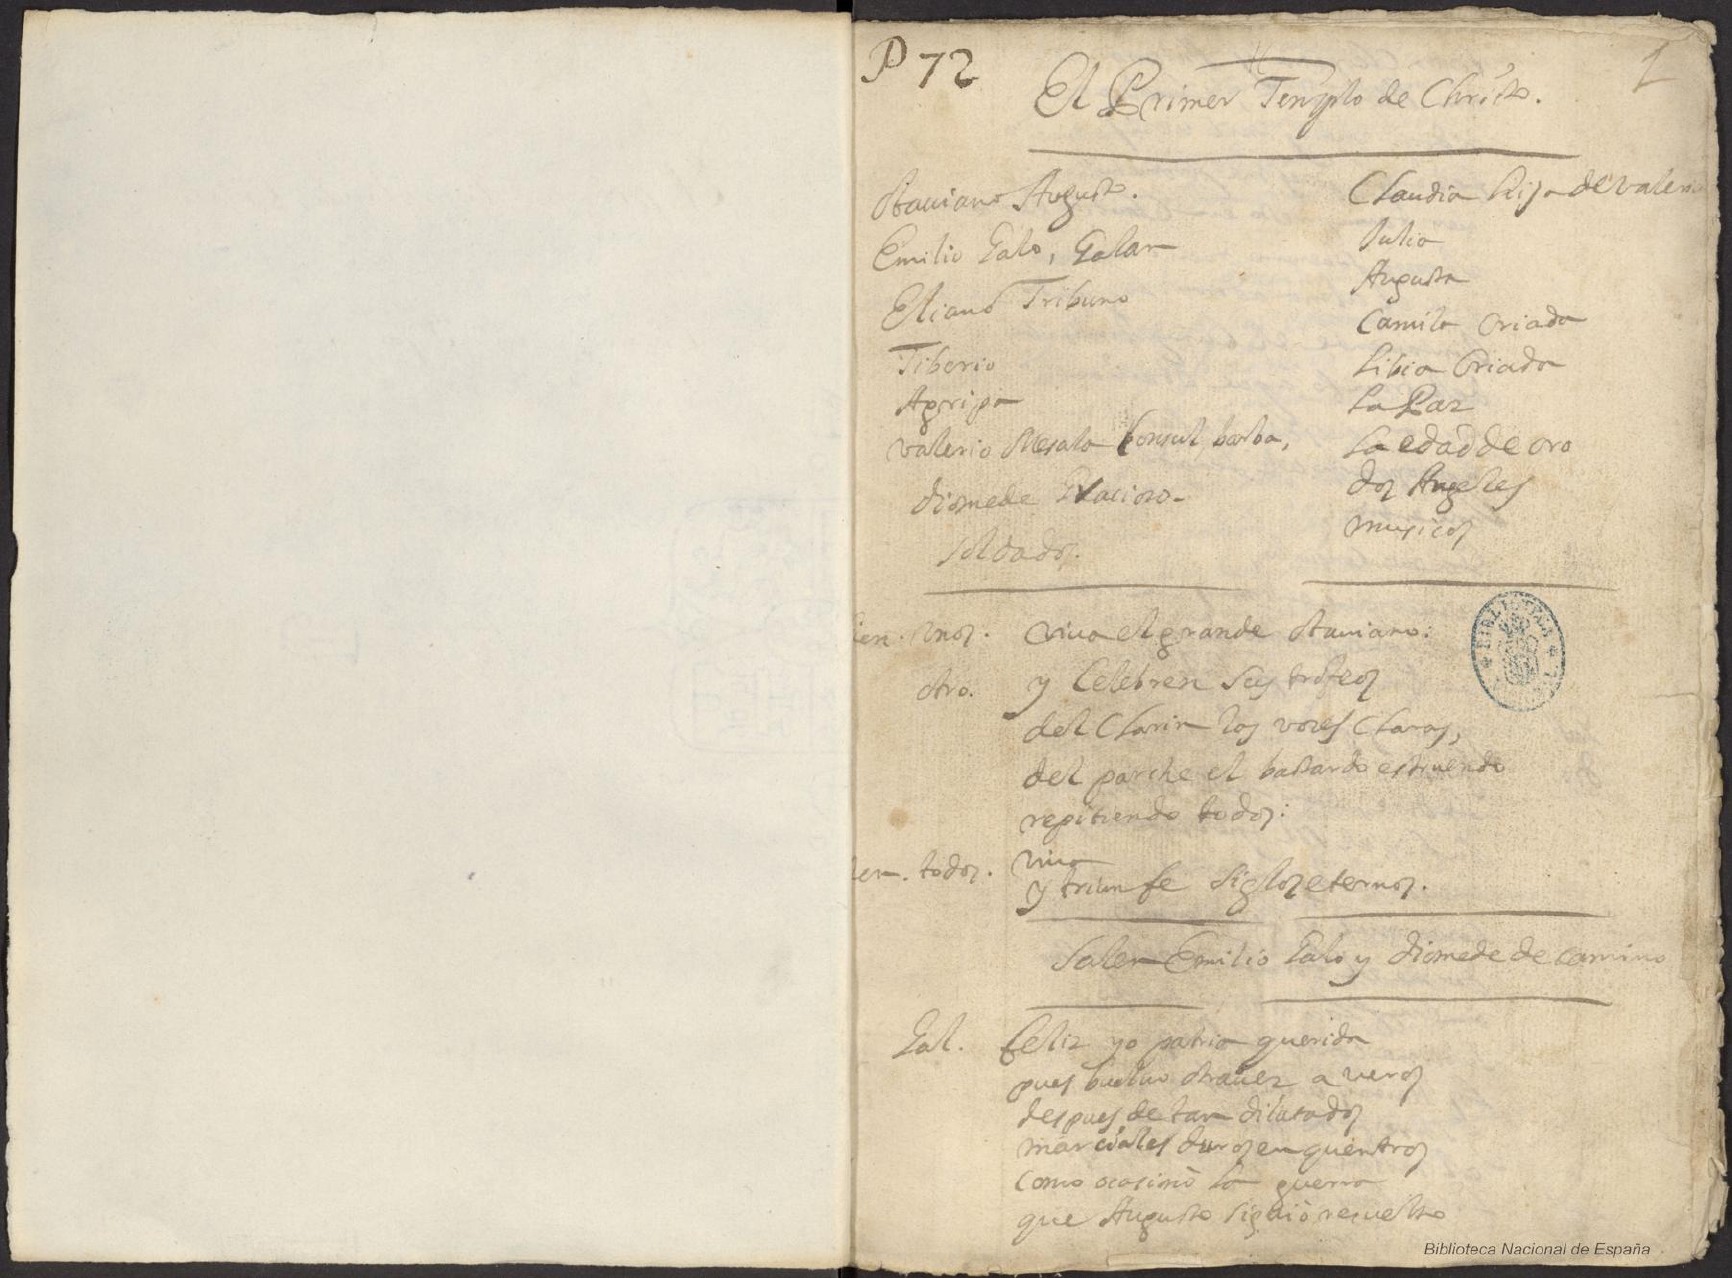 P 72
1
El Primer Templo de Christo.
Otauiano Augusto.
Emilio Galo, Galan
Eliano Tribuno
Tiberio
Agripa
Valerio Mesala Consul, barba,
diomede Gracioso
soldados.
Claudia hija de Valerio
Julia
Augusta
Camila Criada
Libia Criada
La Paz
La edad de oro
dos Angeles
musicos
Unos. Viua el grande Otauiano:
otro. y Celebren sus trofeos
del Clarin las vozes Claras,
del parche el bastardo estruendo
repitiendo todos:
todos. viua
y triunfe siglos eternos.
Salen Emilio Galo y diomede de camino
Gal. feliz yo patria querida
pues bueluo otra uez a veros
despues de tan dilatados
marciales duros enquentros
como ocasionò la guerra
que Augusto siguiò resuelto
BIBLIOTECA
Biblioteca Nacional de España